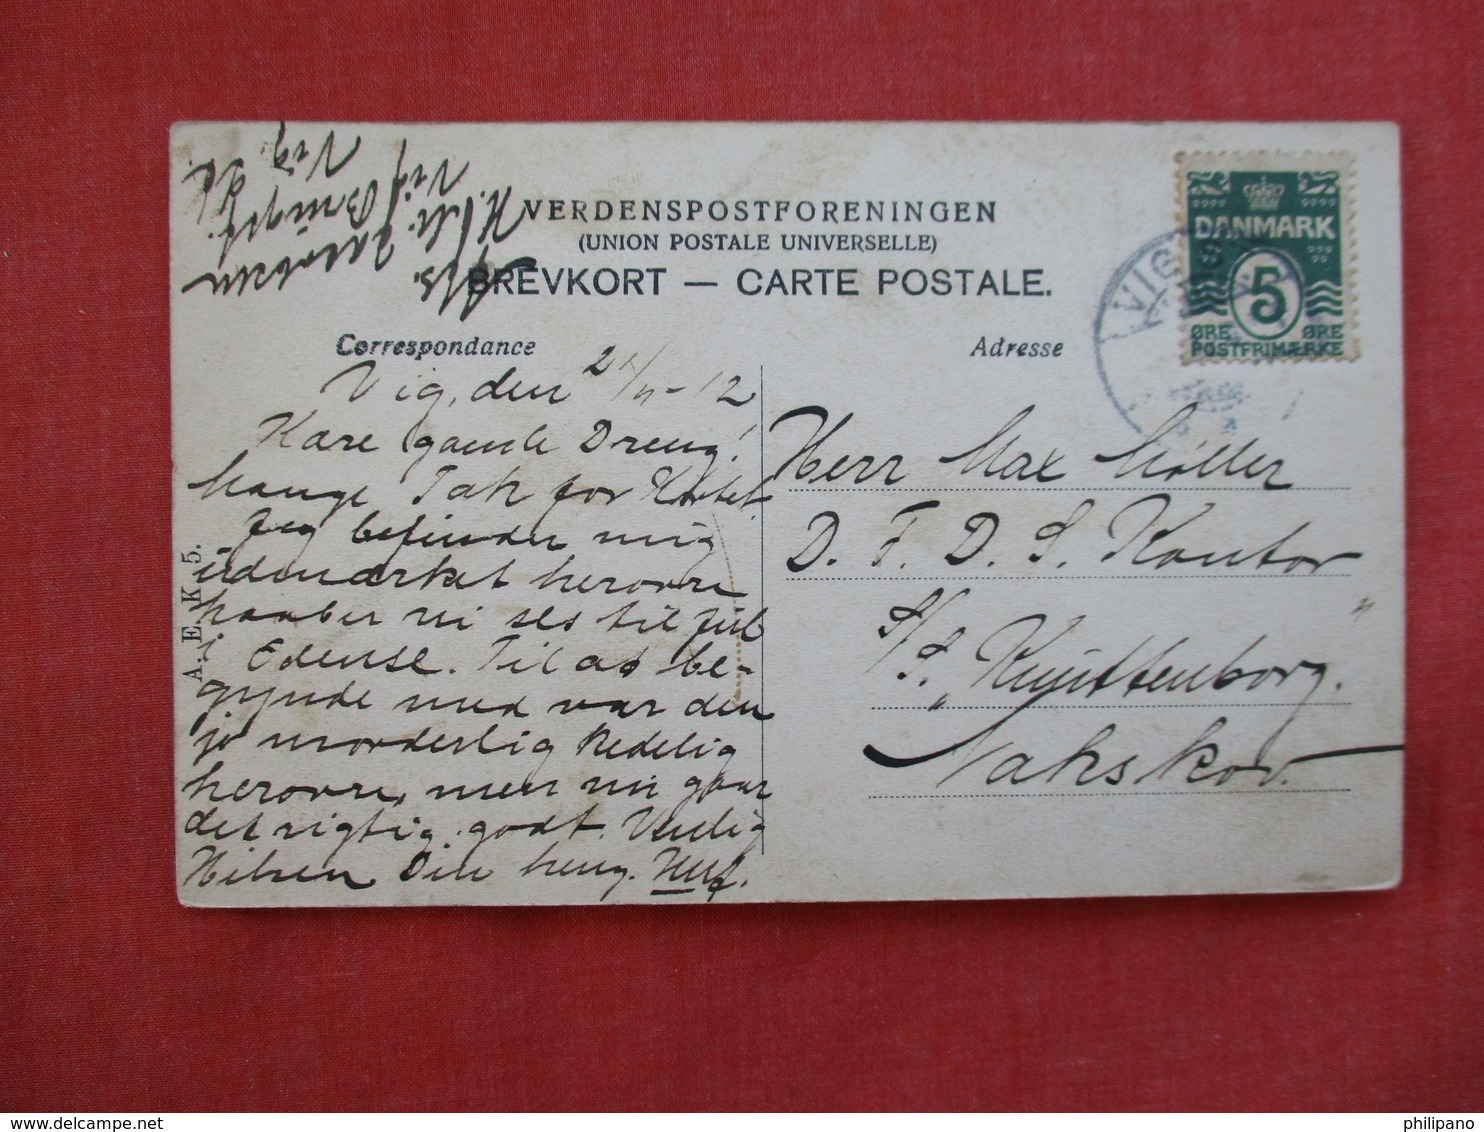 VERDENSPOSTFORENINGEN
(UNION POSTALE UNIVERSELLE)
BREVKORT — CARTE POSTALE.
Correspondance
Adresse
DANMARK
5
ØRE ØRE
POSTFRIMÆRKE
VIG
Vig, den 21/11-12
Kære gamle Dreng!
Mange Tak for Kortet
Jeg befinder mig
udmærket herovre
haaber vi ses til Jul
i Odense. Til at be-
gynde med var den
jo morderlig kedelig
herovre, men nu gaar
det rigtig godt. Venlig
Hilsen Din heng.
Herr Max Møller
D. F. D. S. Kontor
S/S. „Kuyttenborg."
Nakskov.
A. E. K 5.
Vig St.
philipano
delcampe.net